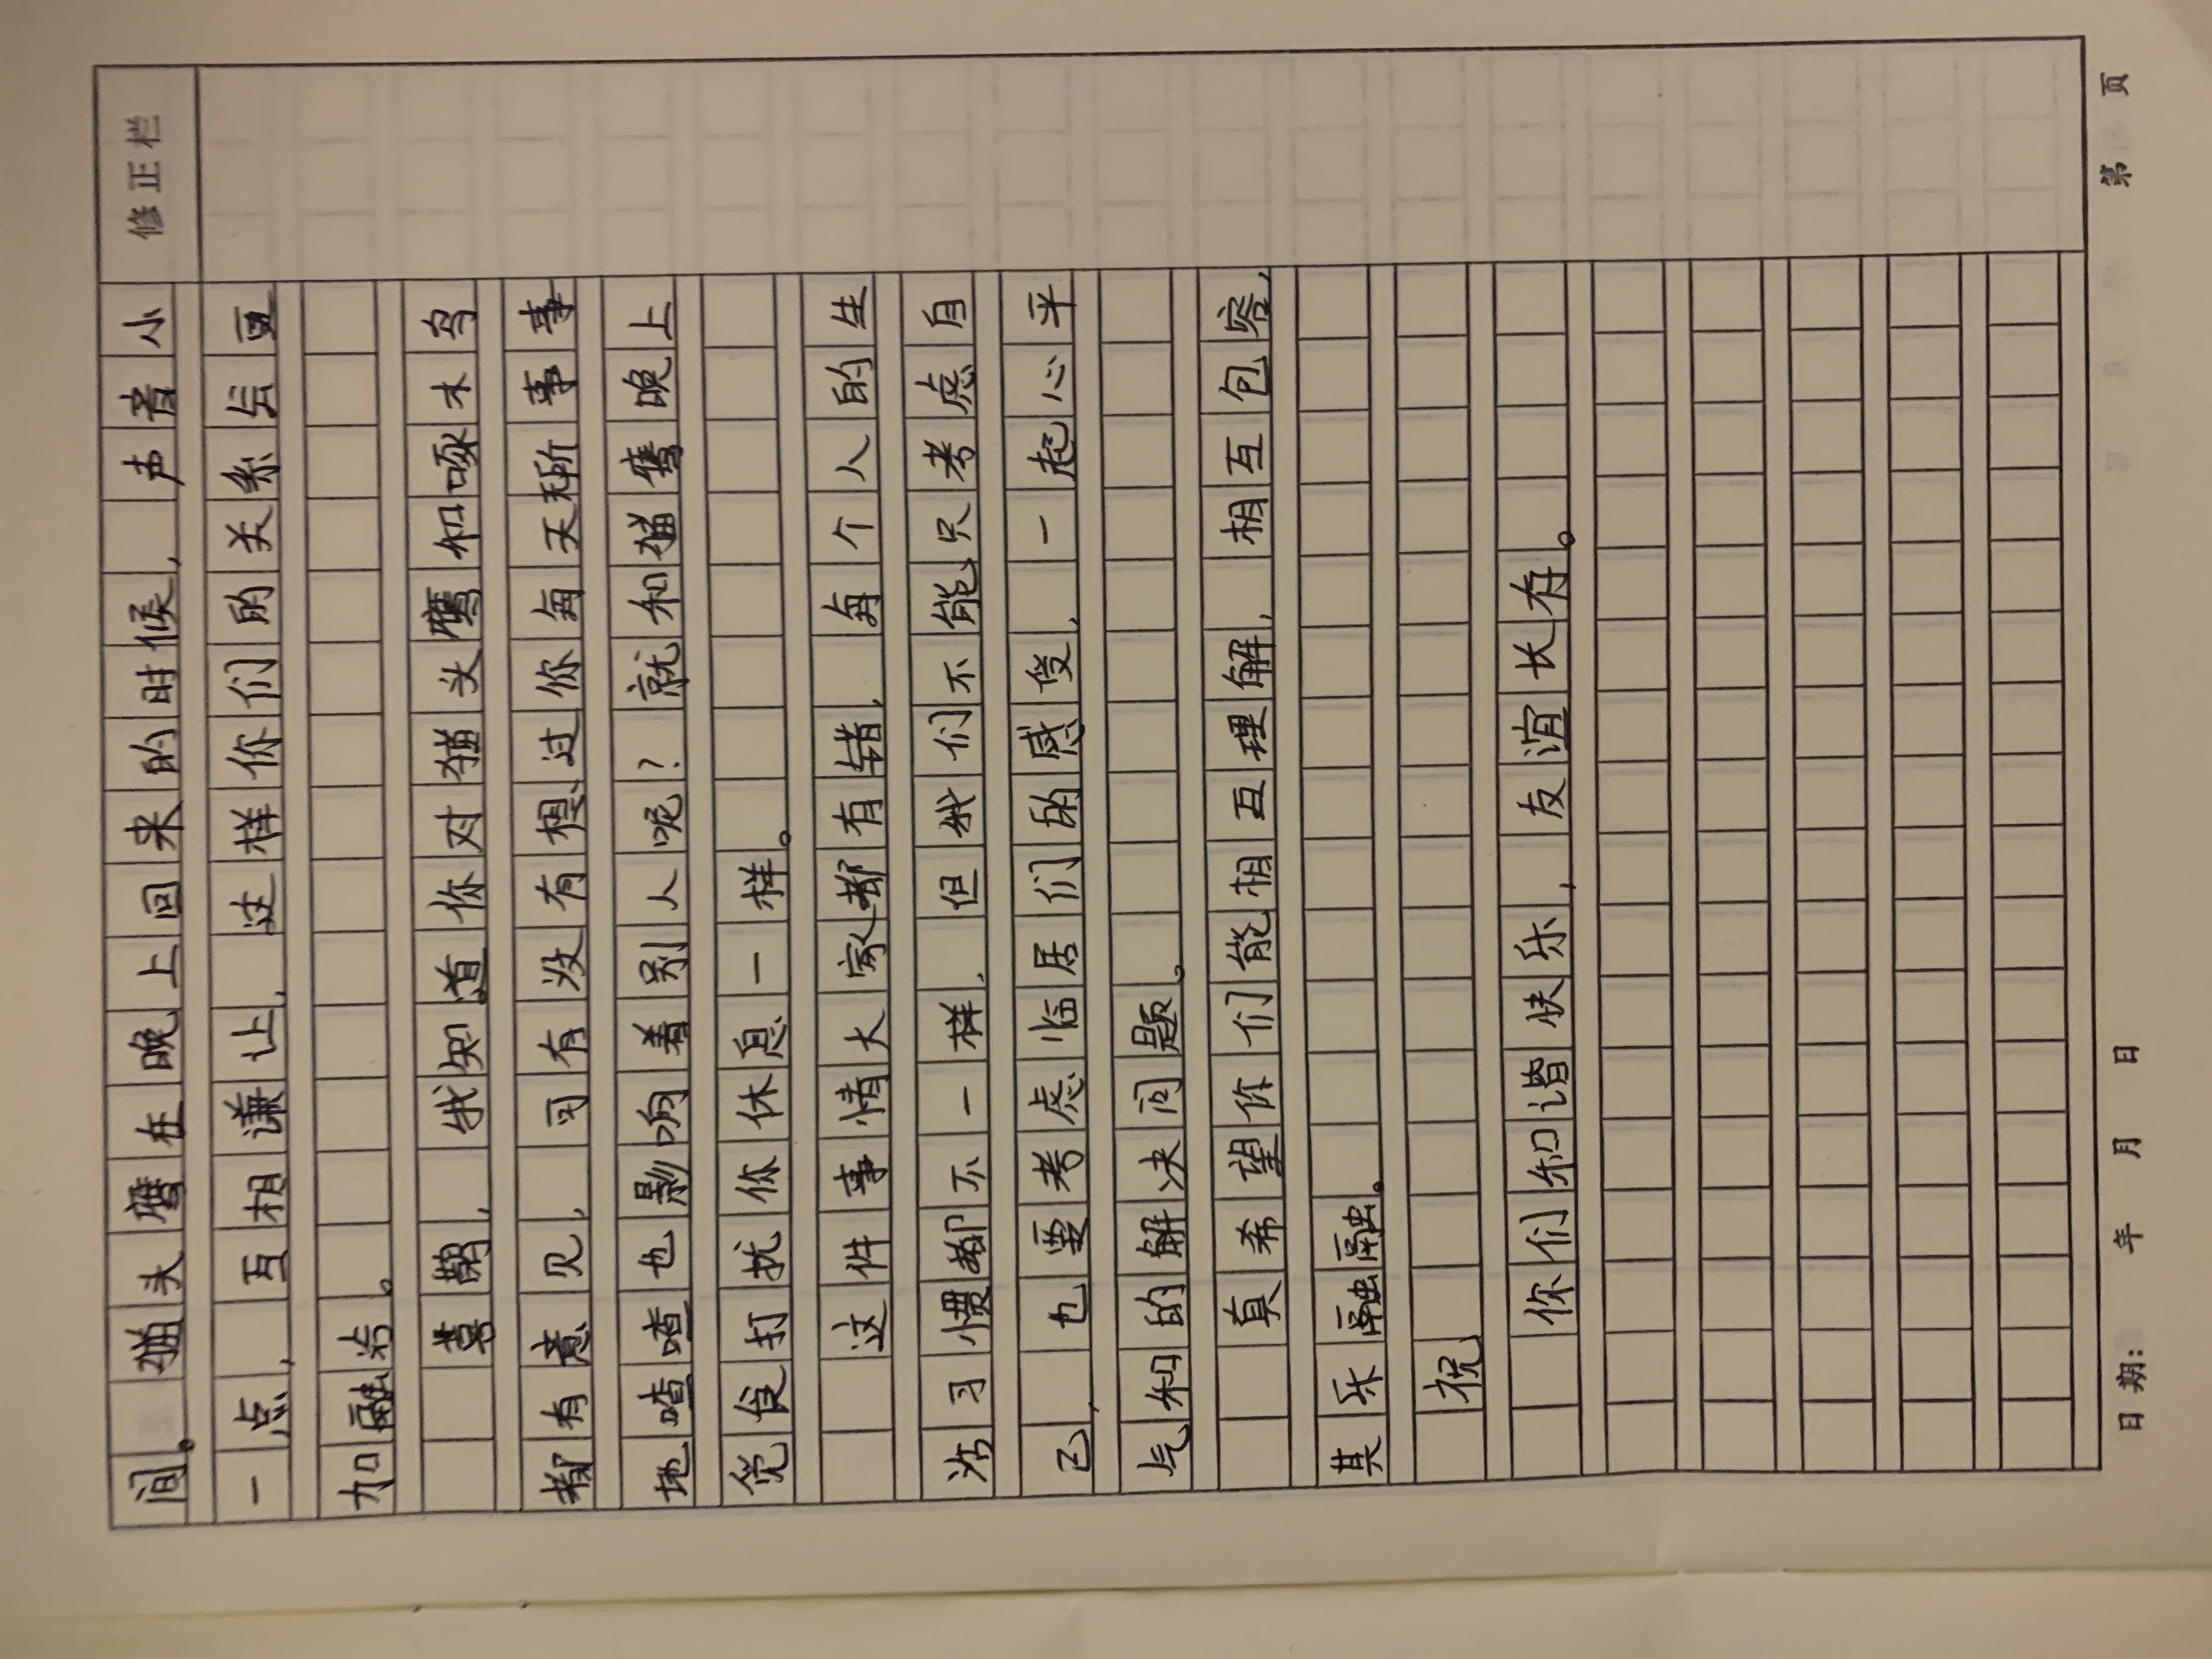 修正栏
间。猫头鹰在晚上回来的时候,声音小
一点,互相谦让,这样你们的关系会更
加融洽。
喜鹊,我知道你对猫头鹰和啄木鸟
都有意见,可有没有想过你每天无所事事
地喳喳也影响着别人呢?就和猫鹰晚上
觉得打扰你休息一样。
这件事情大家都有错,每个人的生
活习惯都不一样,但我们不能只考虑自
己,也要考虑临居们的感受,一起心平
气和的解决问题。
真希望你们能相互理解,相互包容,
其乐融融。
祝
你们和谐快乐,友谊长存。
日期: 年 月 日 第 页